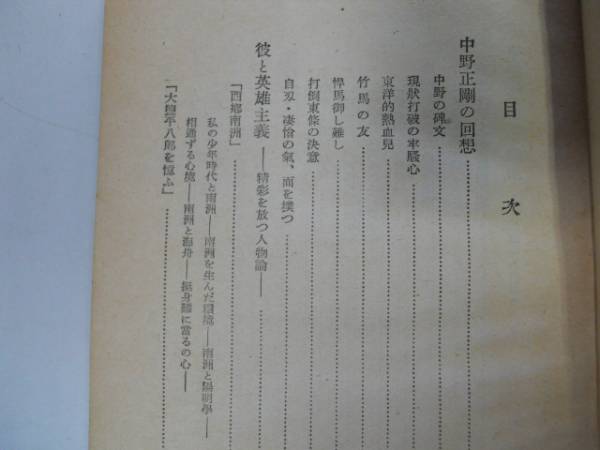 目次
中野正剛の回想
中野の碑文
現狀打破の牢騷心
東洋的熱血兒
竹馬の友
悍馬御し難し
打倒東條の決意
自刃・凄愴の氣、面を撲つ
彼と英雄主義——精彩を放つ人物論——
「西郷南洲」
私の少年時代と南洲——南洲を生んだ環境——南洲と陽明學——
相通ずる心境——南洲と海舟——挺身難に當るの心——
「大鹽平八郎を憶ふ」